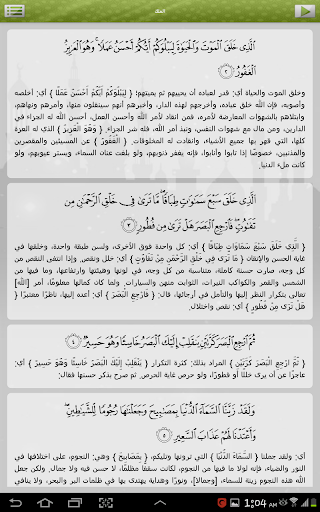 الملك
ٱلَّذِى خَلَقَ ٱلْمَوْتَ وَٱلْحَيَوٰةَ لِيَبْلُوَكُمْ أَيُّكُمْ أَحْسَنُ عَمَلًا ۚ وَهُوَ ٱلْعَزِيزُ
ٱلْغَفُورُ ٢
وخلق الموت والحياة أي: قدر لعباده أن يحييهم ثم يميتهم؛ { لِيَبْلُوَكُمْ أَيُّكُمْ أَحْسَنُ عَمَلًا } أي: أخلصه
وأصوبه، فإن الله خلق عباده، وأخرجهم لهذه الدار، وأخبرهم أنهم سينقلون منها، وأمرهم ونهاهم،
وابتلاهم بالشهوات المعارضة لأمره، فمن انقاد لأمر الله وأحسن العمل، أحسن الله له الجزاء في
الدارين، ومن مال مع شهوات النفس، ونبذ أمر الله، فله شر الجزاء. { وَهُوَ الْعَزِيزُ } الذي له العزة
كلها، التي قهر بها جميع الأشياء، وانقادت له المخلوقات. { الْغَفُورُ } عن المسيئين والمقصرين
والمذنبين، خصوصًا إذا تابوا وأنابوا، فإنه يغفر ذنوبهم، ولو بلغت عنان السماء، ويستر عيوبهم، ولو
كانت ملء الدنيا.
ٱلَّذِى خَلَقَ سَبْعَ سَمَٰوَٰتٍ طِبَاقًا ۖ مَّا تَرَىٰ فِى خَلْقِ ٱلرَّحْمَٰنِ مِن
تَفَٰوُتٍ ۖ فَٱرْجِعِ ٱلْبَصَرَ هَلْ تَرَىٰ مِن فُطُورٍ ٣
{ الَّذِي خَلَقَ سَبْعَ سَمَاوَاتٍ طِبَاقًا } أي: كل واحدة فوق الأخرى، ولسن طبقة واحدة، وخلقها في
غاية الحسن والإتقان { مَا تَرَى فِي خَلْقِ الرَّحْمَنِ مِنْ تَفَاوُتٍ } أي: خلل ونقص. وإذا انتفى النقص من
كل وجه، صارت حسنة كاملة، متناسبة من كل وجه، في لونها وهيئتها وارتفاعها، وما فيها من
الشمس والقمر والكواكب النيرات، الثوابت منهن والسيارات. ولما كان كمالها معلومًا، أمر [الله]
تعالى بتكرار النظر إليها والتأمل في أرجائها، قال: { فَارْجِعِ الْبَصَرَ } أي: أعده إليها، ناظرًا معتبرًا {
هَلْ تَرَى مِنْ فُطُورٍ } أي: نقص واختلال.
ثُمَّ ٱرْجِعِ ٱلْبَصَرَ كَرَّتَيْنِ يَنقَلِبْ إِلَيْكَ ٱلْبَصَرُ خَاسِئًا وَهُوَ حَسِيرٌ ٤
{ ثُمَّ ارْجِعِ الْبَصَرَ كَرَّتَيْنِ } المراد بذلك: كثرة التكرار { يَنْقَلِبْ إِلَيْكَ الْبَصَرُ خَاسِئًا وَهُوَ حَسِيرٌ } أي:
عاجزًا عن أن يرى خللا أو فطورًا، ولو حرص غاية الحرص. ثم صرح بذكر حسنها فقال:
وَلَقَدْ زَيَّنَّا ٱلسَّمَآءَ ٱلدُّنْيَا بِمَصَٰبِيحَ وَجَعَلْنَٰهَا رُجُومًا لِّلشَّيَٰطِينِ ۖ
وَأَعْتَدْنَا لَهُمْ عَذَابَ ٱلسَّعِيرِ ٥
أي: ولقد جملنا { السَّمَاءَ الدُّنْيَا } التي ترونها وتليكم، { بِمَصَابِيحَ } وهي: النجوم، على اختلافها في
النور والضياء، فإنه لولا ما فيها من النجوم، لكانت سقفًا مظلمًا، لا حسن فيه ولا جمال. ولكن جعل
الله هذه النجوم زينة للسماء، [وجمالا]، ونورًا وهداية يهتدى بها في ظلمات البر والبحر، ولا ينافي
1:04 AM